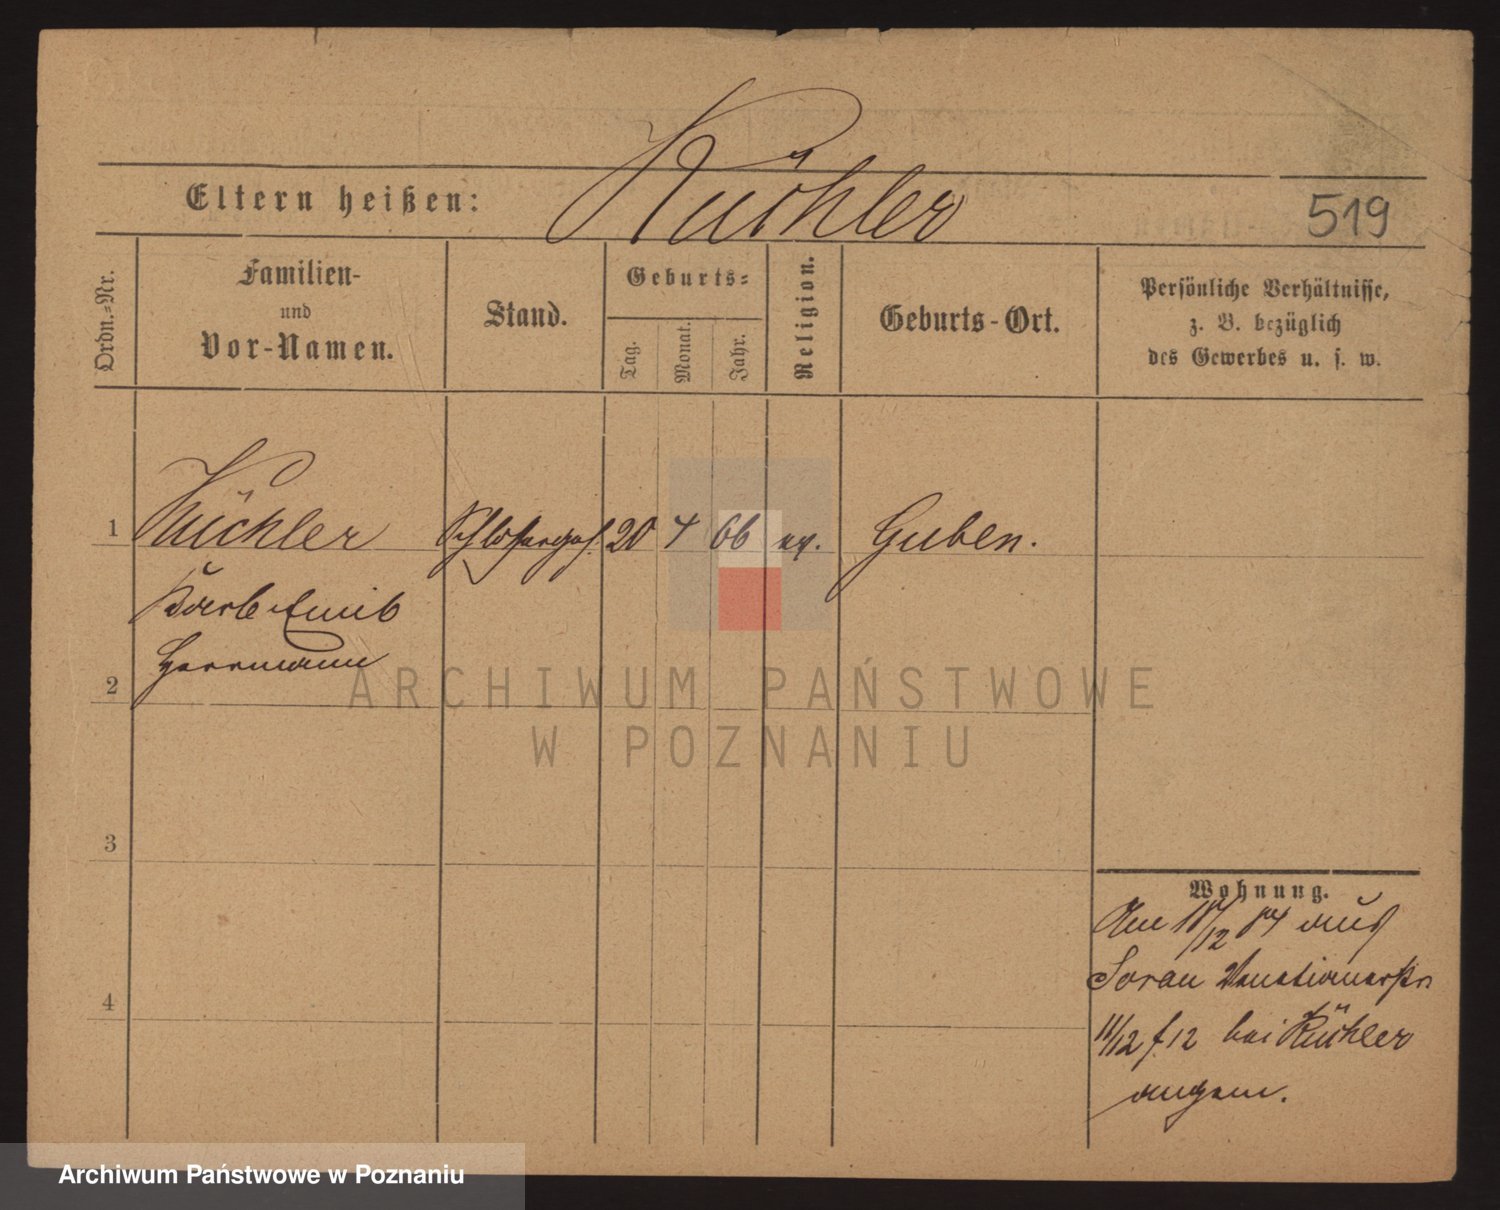 Eltern heißen:
Küchler
519
Ordn.-Nr.
Familien-
und
Vor-Namen.
Stand.
Geburts-
Tag.
Monat.
Jahr.
Religion.
Geburts-Ort.
Persönliche Verhältnisse,
z. B. bezüglich
des Gewerbes u. s. w.
1
Küchler
Schlosserges.
20 4 66 ev.
Guben.
Karl Emil
Herrmann
2
3
4
Wohnung.
Am /12 84 aus
Sorau
11/12 f. 12 bei Küchler
angem.
ARCHIWUM PAŃSTWOWE
W POZNANIU
Archiwum Państwowe w Poznaniu